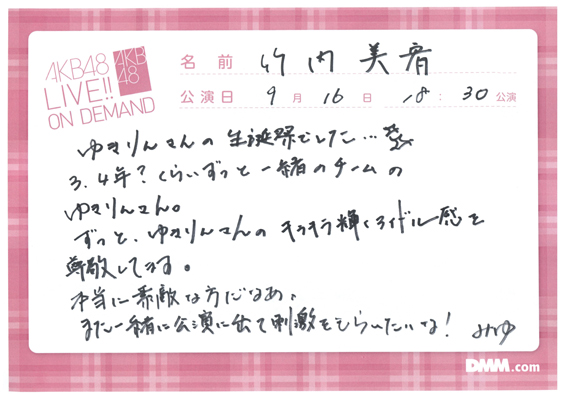 AKB48
LIVE!!
ON DEMAND
AKB
48
名前 竹内美宥
公演日 9月16日 18:30公演
ゆきりんさんの生誕祭でした…
3.4年?くらいずっと一緒のチームの
ゆきりんさん。
ずっと、ゆきりんさんのキラキラ輝くアイドル感を
尊敬してます。
本当に素敵な方だなあ、
また一緒に公演に出て刺激をもらいたいな! みゆ
DMM.com